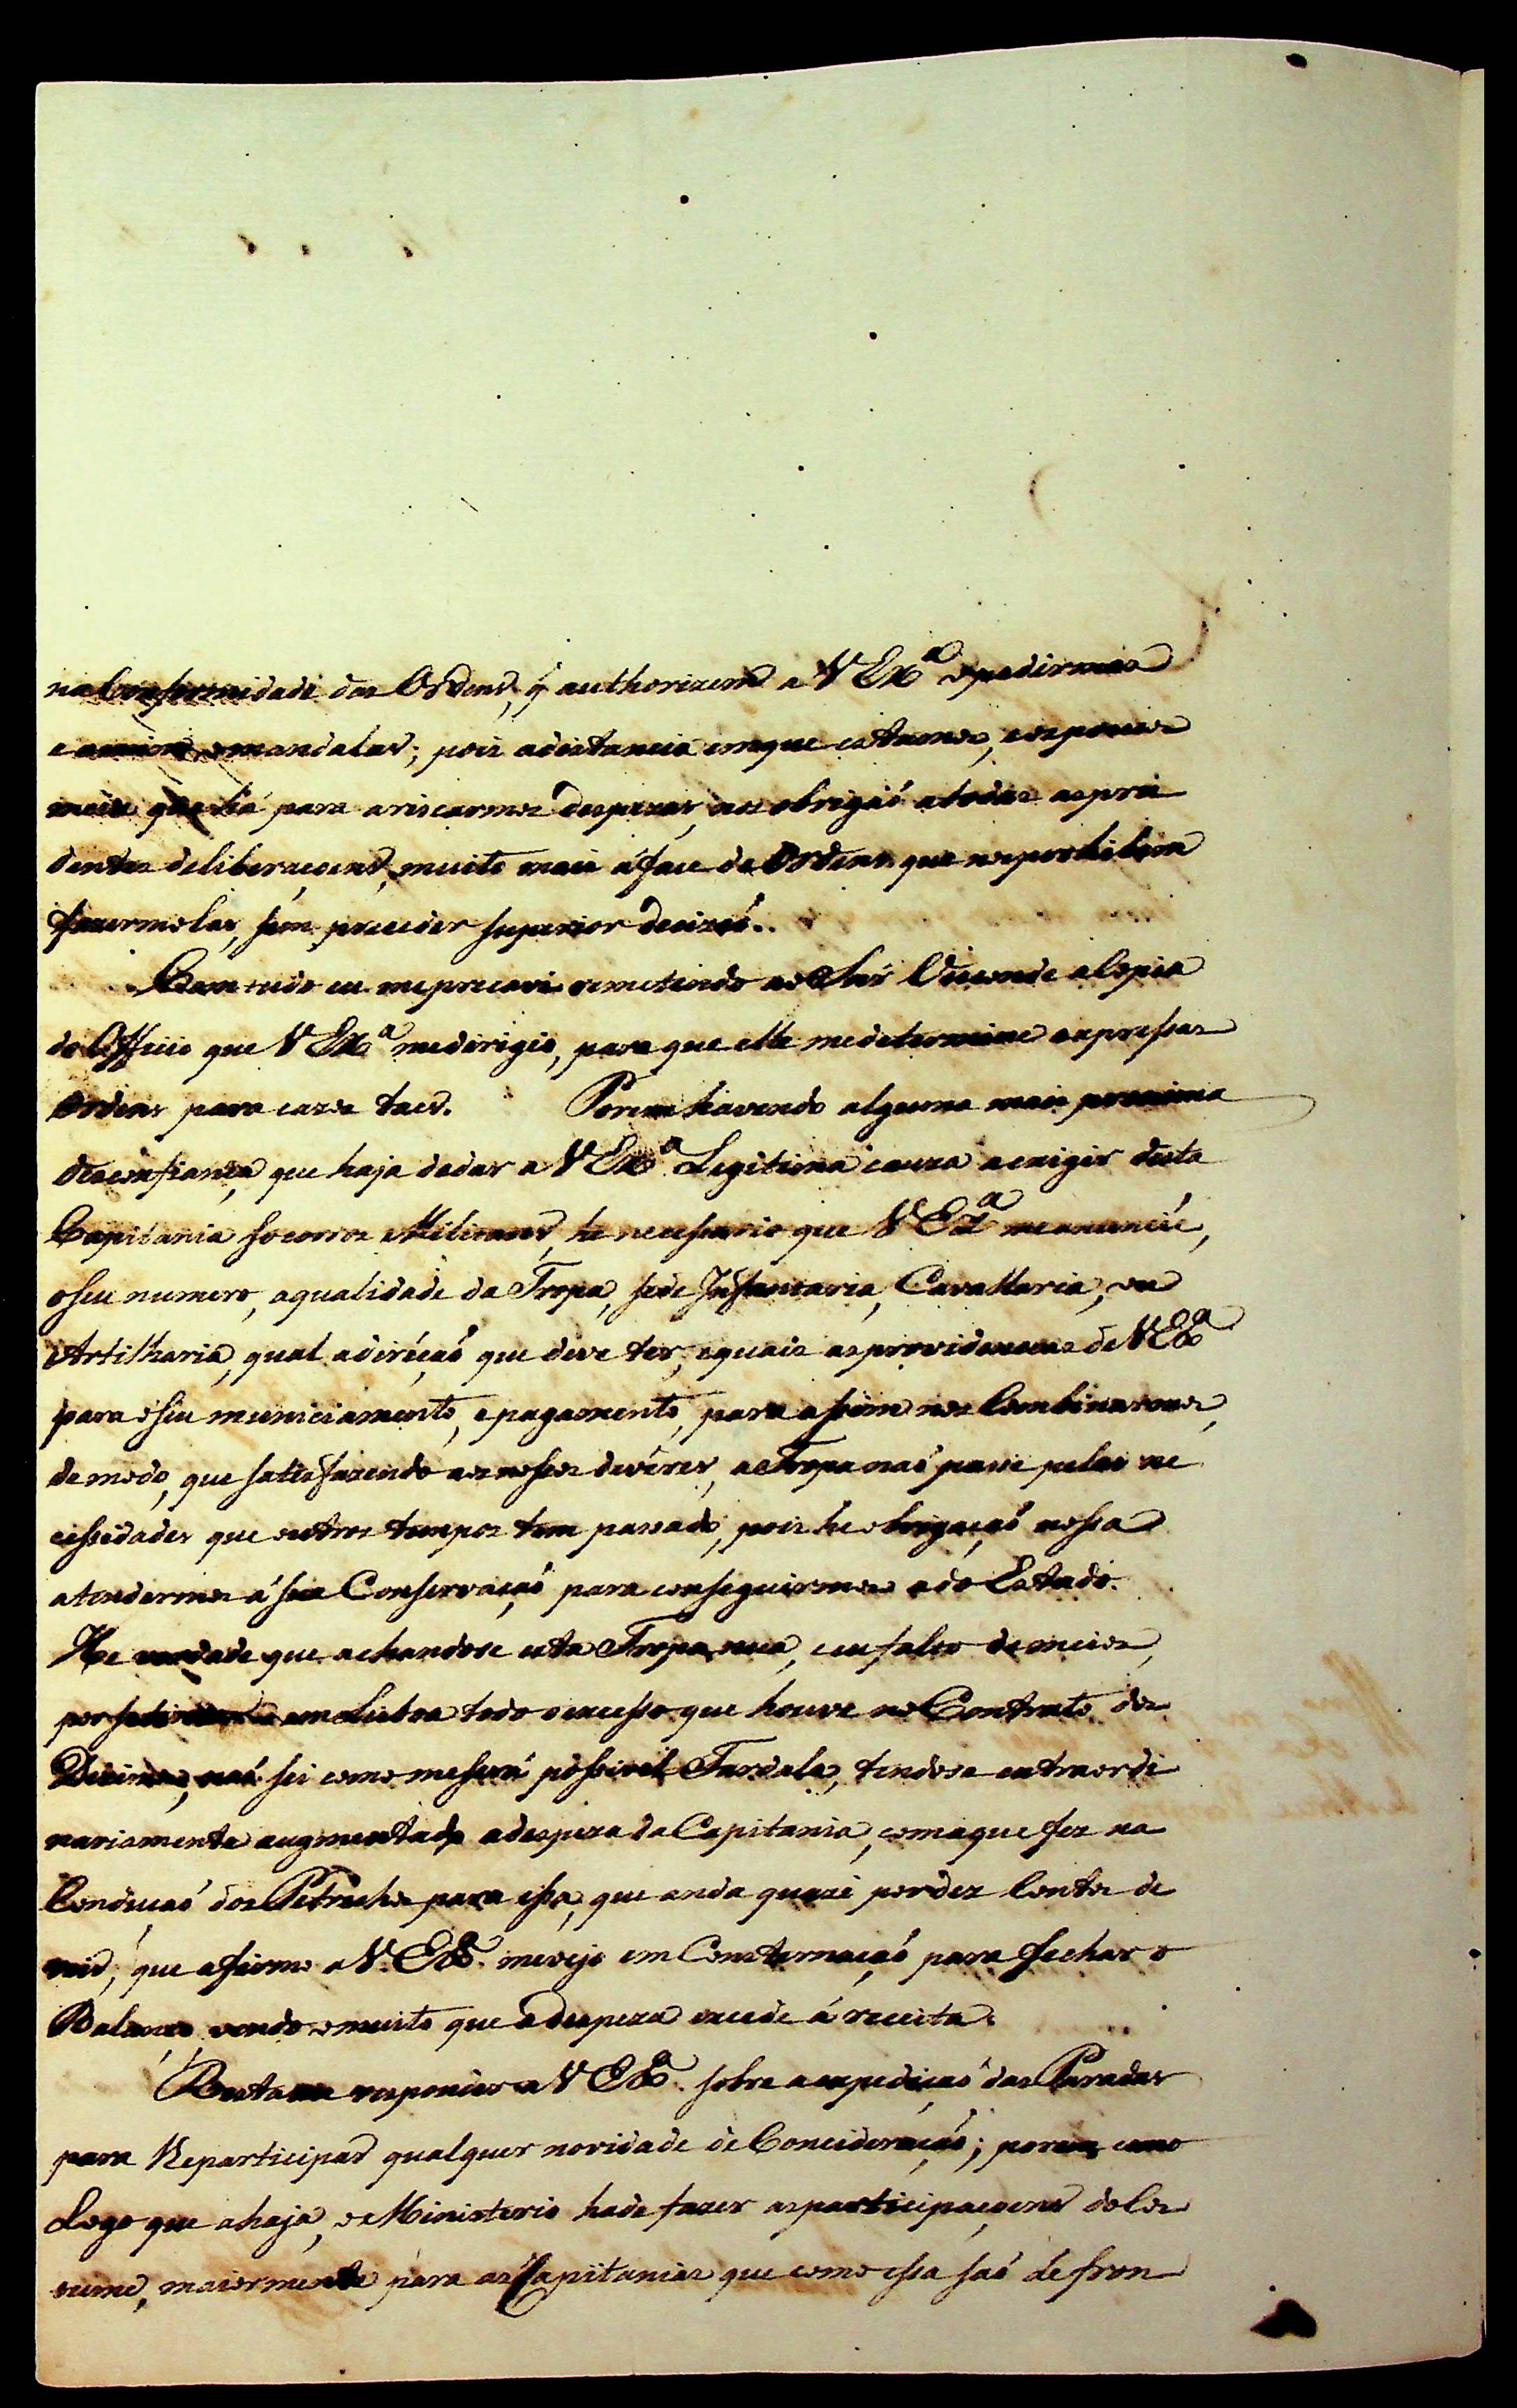 na Conformidade das Ordens, q̃ authorizem a V Exª a pedirmas
e a mim, a mandalas; pois a distancia em que estamos, e os poucos
meios que há para ariscarmos despezas, nos obrigaó a todas as pru
dentes deliberaçoens, muito mais á face de Ordens que nos prohibem
fazermolas, sem preceder superior Decizaó.
Com tudo eu me precavi remetendo ao Snr Visconde a Copia
do Officio que V Exª me dirigio, para que elle me determine expressas
Ordens para cazos taes. Porem havendo alguma mais proxima
desconfiansa, que haja de dar a V Exª Legitima cauza a exigir desta
Capitania socorros Militares, he necessario que V Exª me anuncie,
o seu numero, a qualidade da Tropa, se de Infantaria, Cavallaria, ou
Artilharia, qual a direcçaó que deve ter, e quais as providencias de V Exª
para o seu municiamento, e pagamento, para assim nos Combinarmos,
de modo, que satisfazendo aos nossos devêres, a Tropa naó passe pelas ne
cessidades que outros tempos tem passado, pois he obrigaçaó nossa
atendermos á sua Conservaçaó para conseguirmos a do Estado.
He verdade que achandose esta Tropa nua, e eu falto de meios,
por em Lisboa todo o excesso que houve no Contrato dos
Dizimos, naó sei como me será possivel Fardala, tendose extraordi
nariamente augmentado a despeza da Capitania, com a que fez na
Conducaó dos Petrechos para essa, que anda quazi por dez Contos de
reis, que afirmo a V. Exª. me vejo em Consternaçaó para fechar o
Balanço, vendo o muito que a despeza excede á receita.
Restame responder a V Exª. sobre a expediçaó das Paradas
para Reparticipar qualquer novidade de Concideraçaó; porem como
Logo que a haja, o Ministerio hade fazer as participaçoens do Cos
tume, maiormente para as Capitanias que como essa saó de fron